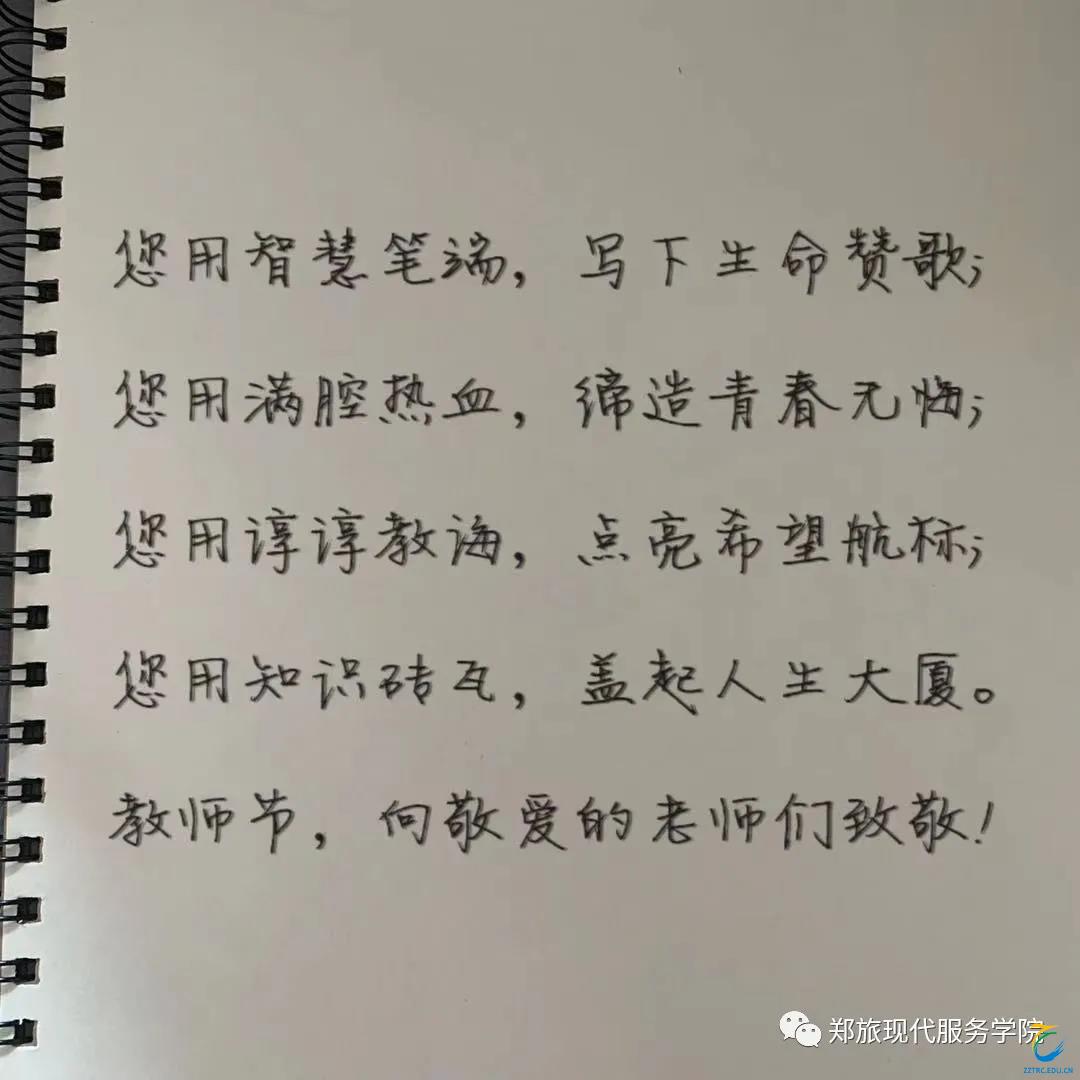 您用智慧笔端，写下生命赞歌；
您用满腔热血，缔造青春无悔；
您用谆谆教诲，点亮希望航标；
您用知识砖瓦，盖起人生大厦。
教师节，向敬爱的老师们致敬！
郑旅现代服务学院
ZZTRC.EDU.CN